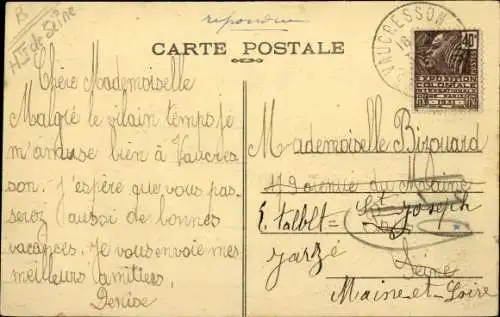 B
Hts de Seine
repondue
CARTE POSTALE
VAUCRESSON
40c
EXPOSITION
COLONIALE
INTERNATIONALE
PARIS 1931
Chère Mademoiselle
Malgré le vilain temps je
m'amuse bien à Vaucres
son. J'espère que vous pas-
serez aussi de bonnes
vacances. Je vous envoie mes
meilleurs amitiés.
Denise
Mademoiselle Bizouard
avenue du Maine
E. Talbet = St Joseph
Jarzé
Seine
Maine-et-Loire